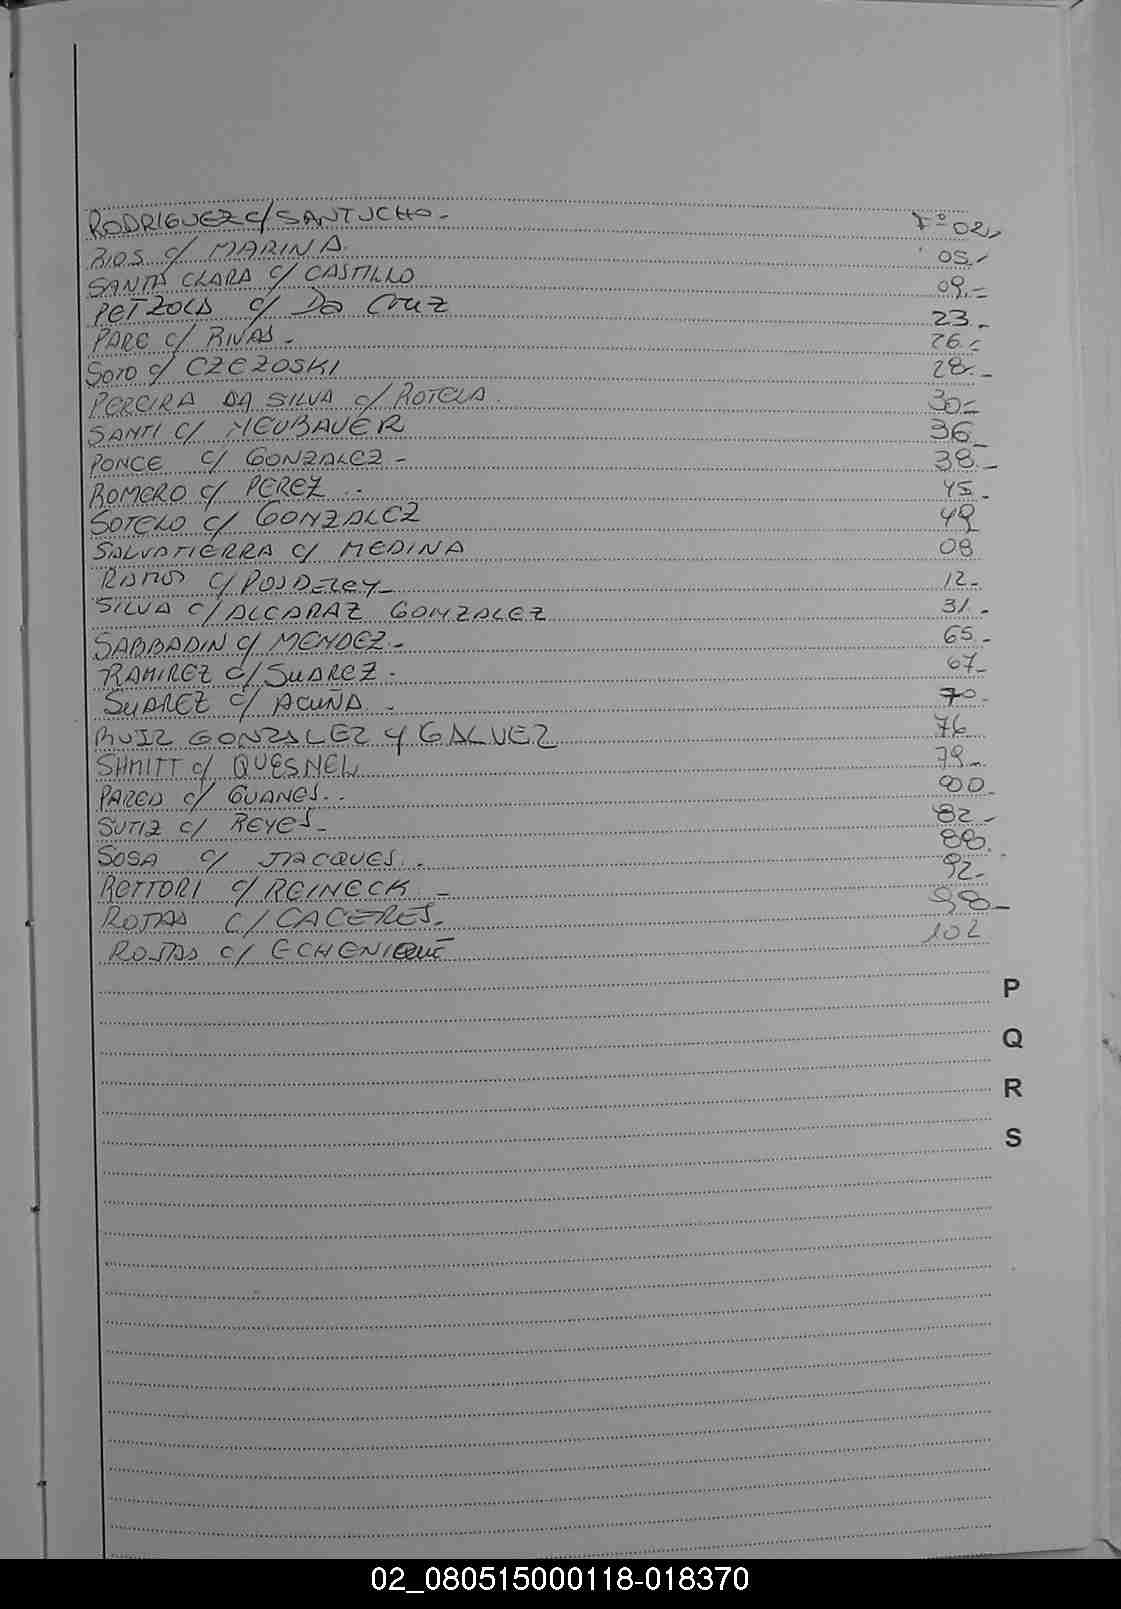 RODRIGUEZ c/ SANTUCHO.- Fº 02.-
RIOS c/ MARINA. 05.-
SANTA CLARA c/ CASTILLO 09.-
PETZOLD c/ Da Cruz 23.-
PARE c/ RIVAS.- 26.-
SOTO c/ CZEZOSKI 28.-
PEREIRA DA SILVA c/ ROTELA. 30.-
SANTI c/ NEUBAUER 36.-
PONCE c/ GONZALEZ.- 38.-
ROMERO c/ PEREZ.- 45.-
SOTELO c/ GONZALEZ 49
SALVATIERRA c/ MEDINA 08
RAMOS c/ 12.-
SILVA c/ ALCARAZ GONZALEZ 31.-
SABBADIN c/ MENDEZ.- 65.-
RAMIREZ c/ SUAREZ.- 67.-
SUAREZ c/ ACUÑA.- 70.-
RUIZ GONZALEZ Y GALVEZ 76
SHMITT c/ QUESNEL 79.-
PARED c/ GUANES.- 80.-
SUTIZ c/ REYES.- 82.-
SOSA c/ JACQUES.- 88.
RETTORI c/ REINECK.- 92.-
ROJAS c/ CACERES.- 98.-
ROJAS c/ ECHENIQUE 102
P
Q
R
S
02_080515000118-018370